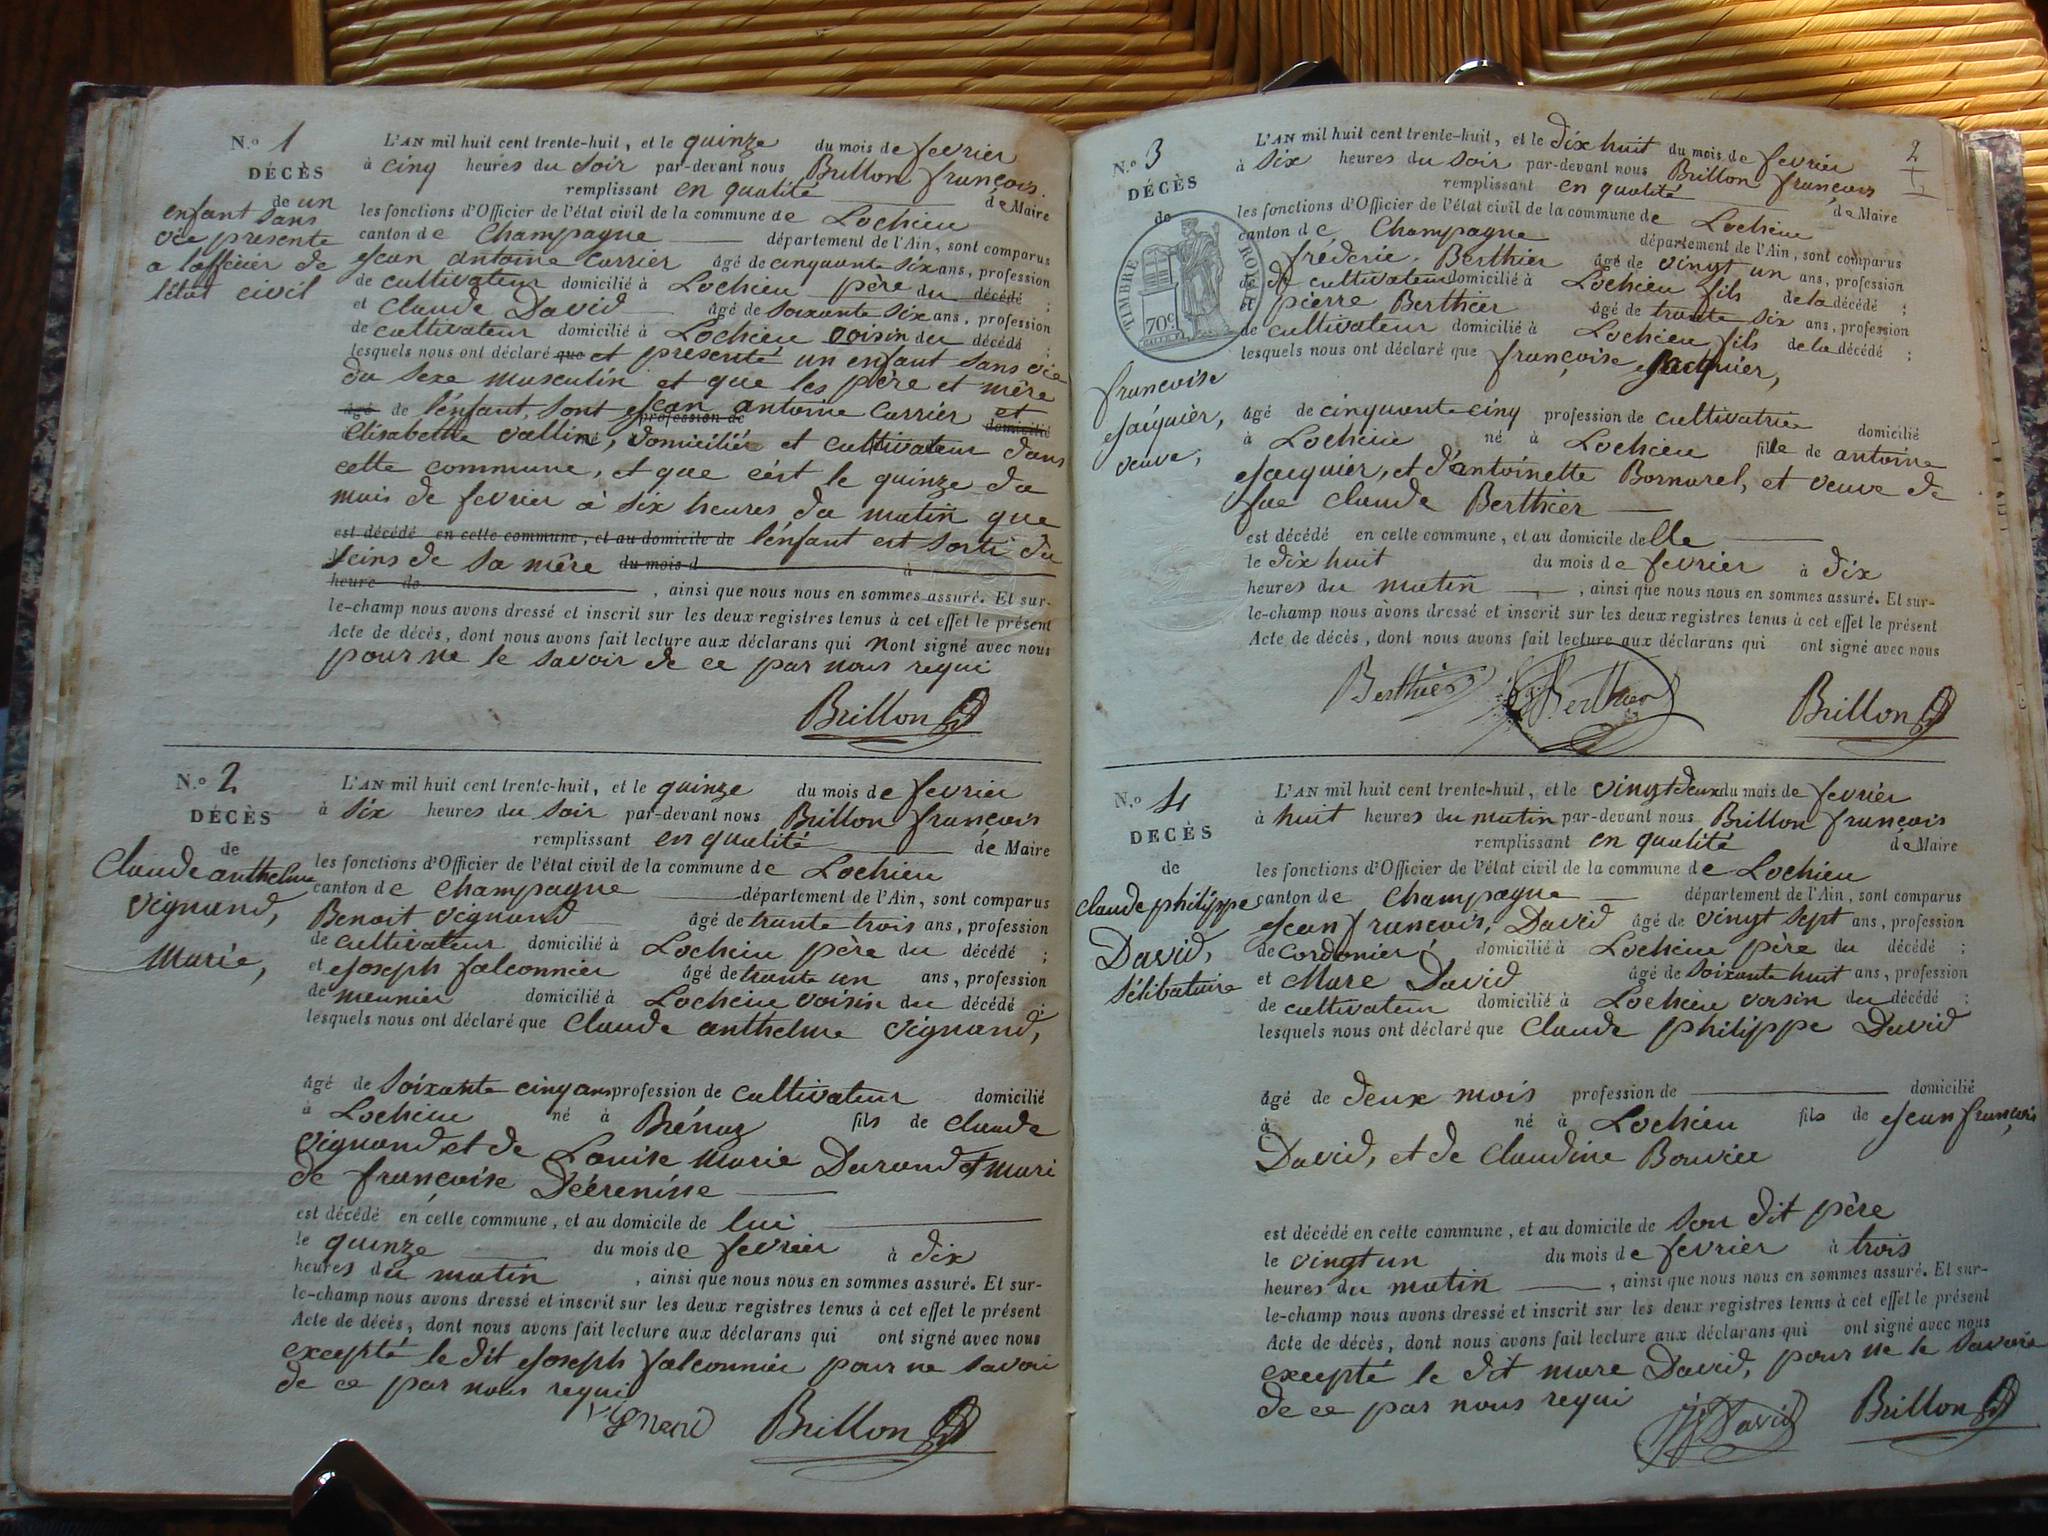 N.º 1
DÉCÈS
de un
enfant sans
vie presenté
a lofficier de
l'état civil
L'AN mil huit cent trente-huit, et le quinze du mois de fevrier
à cinq heures du soir par-devant nous Brillon françois
remplissant en qualité de Maire
les fonctions d'Officier de l'état civil de la commune de Lochieu
canton de Champagne département de l'Ain, sont comparus
Jean antoine Carrier âgé de cinquante six ans, profession
de cultivateur domicilié à Lochieu père du décédé ;
et Claude David âgé de soixante six ans, profession
de cultivateur domicilié à Lochieu voisin du décédé ;
lesquels nous ont déclaré que et presenté un enfant sans vie
du sexe masculin et que les père et mère
âgé de l'enfant, sont Jean antoine Carrier et
profession de domicilié
Elisabethe vallin, domicilié et cultivateur dans
cette commune, et que c'est le quinze du
mois de fevrier à six heures du matin que
est décédé en cette commune, et au domicile de l'enfant est sorti du
seins de sa mère du mois d à
heure de , ainsi que nous nous en sommes assuré. Et sur-
le-champ nous avons dressé et inscrit sur les deux registres tenus à cet effet le présent
Acte de décès, dont nous avons fait lecture aux déclarans qui Nont signé avec nous
pour ne le savoir de ce par nous requi
Brillon
N.º 2
DÉCÈS
de
Claude anthelme
Vignand,
Marié,
L'AN mil huit cent trente-huit, et le quinze du mois de fevrier
à six heures du soir par-devant nous Brillon françois
remplissant en qualité de Maire
les fonctions d'Officier de l'état civil de la commune de Lochieu
canton de Champagne département de l'Ain, sont comparus
Benoit Vignand âgé de trante trois ans, profession
de cultivateur domicilié à Lochieu père du décédé ;
et Joseph falconnier âgé de trante un ans, profession
de meunier domicilié à Lochieu voisin du décédé ;
lesquels nous ont déclaré que Claude anthelme Vignand,
âgé de soixante cinq ans profession de cultivateur domicilié
à Lochieu né à Brénaz fils de Claude
Vignand et de Louise Marie Durand et mari
de françoise
est décédé en cette commune, et au domicile de lui
le quinze du mois de fevrier à dix
heures du matin , ainsi que nous nous en sommes assuré. Et sur-
le-champ nous avons dressé et inscrit sur les deux registres tenus à cet effet le présent
Acte de décès, dont nous avons fait lecture aux déclarans qui ont signé avec nous
excepté le dit Joseph falconnier pour ne savoir
de ce par nous requi
Vignand Brillon
2
N.º 3
DÉCÈS
de
TIMBRE ROYAL
70c
françoise
Jaiquier,
veuve,
L'AN mil huit cent trente-huit, et le dix huit du mois de fevrier
à six heures du soir par-devant nous Brillon françois
remplissant en qualité de Maire
les fonctions d'Officier de l'état civil de la commune de Lochieu
canton de Champagne département de l'Ain, sont comparus
fréderic Berthier âgé de vingt un ans, profession
de cultivateur domicilié à Lochieu fils de la décédé ;
et pierre Berthier âgé de trante six ans, profession
de cultivateur domicilié à Lochieu fils de la décédé ;
lesquels nous ont déclaré que françoise Jacquier,
âgé de cinquante cinq profession de cultivatrice domicilié
à Lochieu né à Lochieu fille de antoine
Jaiquier, et d'antoinette Bornarel, et veuve de
fue Claude Berthier
est décédé en cette commune, et au domicile de lle
le dix huit du mois de fevrier à dix
heures du matin , ainsi que nous nous en sommes assuré. Et sur-
le-champ nous avons dressé et inscrit sur les deux registres tenus à cet effet le présent
Acte de décès, dont nous avons fait lecture aux déclarans qui ont signé avec nous
Berthier Berthier Brillon
N.º 4
DÉCÈS
de
Claude philippe
David,
sélibataire
L'AN mil huit cent trente-huit, et le vingt deux du mois de fevrier
à huit heures du matin par-devant nous Brillon françois
remplissant en qualité de Maire
les fonctions d'Officier de l'état civil de la commune de Lochieu
canton de Champagne département de l'Ain, sont comparus
Jean francois, David âgé de vingt sept ans, profession
de Cordonier domicilié à Lochieu père du décédé ;
et Marc David âgé de soixante huit ans, profession
de cultivateur domicilié à Lochieu voisin du décédé ;
lesquels nous ont déclaré que Claude philippe David
âgé de deux mois profession de domicilié
à né à Lochieu fils de Jean françois
David, et de Claudine Bouvier
est décédé en cette commune, et au domicile de son dit père
le vingt un du mois de fevrier à trois
heures du matin , ainsi que nous nous en sommes assuré. Et sur-
le-champ nous avons dressé et inscrit sur les deux registres tenus à cet effet le présent
Acte de décès, dont nous avons fait lecture aux déclarans qui ont signé avec nous
excepté le dit marc David, pour ne le savoir
de ce par nous requi
David Brillon